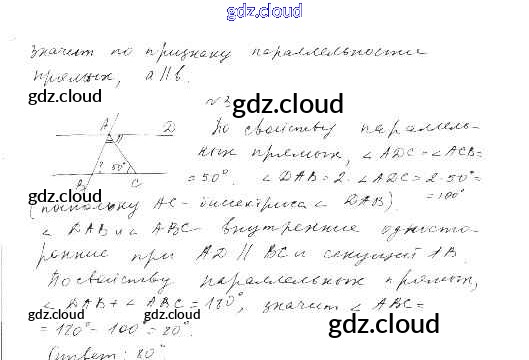 gdz.cloud
значит по признаку параллельности
прямых, a || b.
gdz.cloud
gdz.cloud
№3
gdz.cloud
A D По свойству параллель-
ных прямых, ∠ADC = ∠ACB =
? 50°
B C
= 50°. ∠DAB = 2 · ∠ADC = 2 · 50° =
= 100°
gdz.cloud
gdz.cloud
(поскольку AC - биссектриса ∠DAB).
∠DAB и ∠ABC - внутренние односто-
ронние при AD || BC и секущей AB.
gdz.cloud
gdz.cloud
По свойству параллельных прямых,
∠DAB + ∠ABC = 180°, значит ∠ABC =
= 180° - 100° = 80°.
gdz.cloud
gdz.cloud
Ответ: 80°